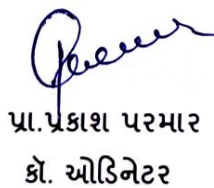 પ્રા.પ્રકાશ પરમાર
કૉ. ઓડિનેટર